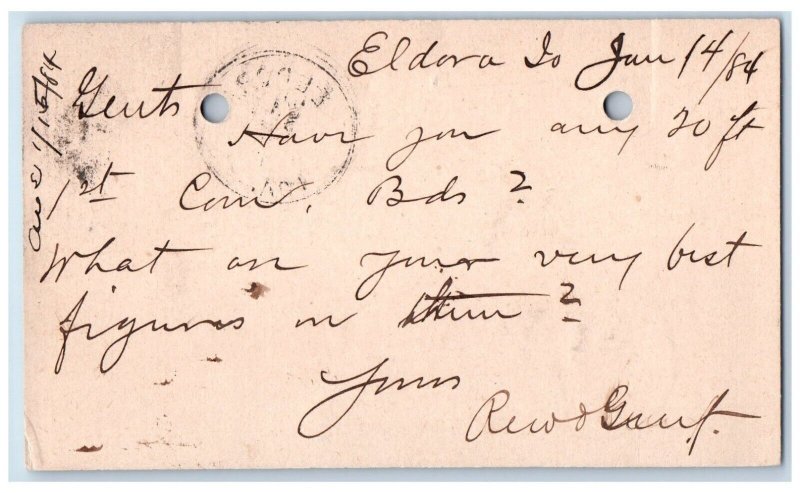 Eldora Io Jan 14/84
Gents
Have you any 20 ft
1st Com. Bds ?
What are your very best
figures on them ?
Yours
Rew &
1/15/84